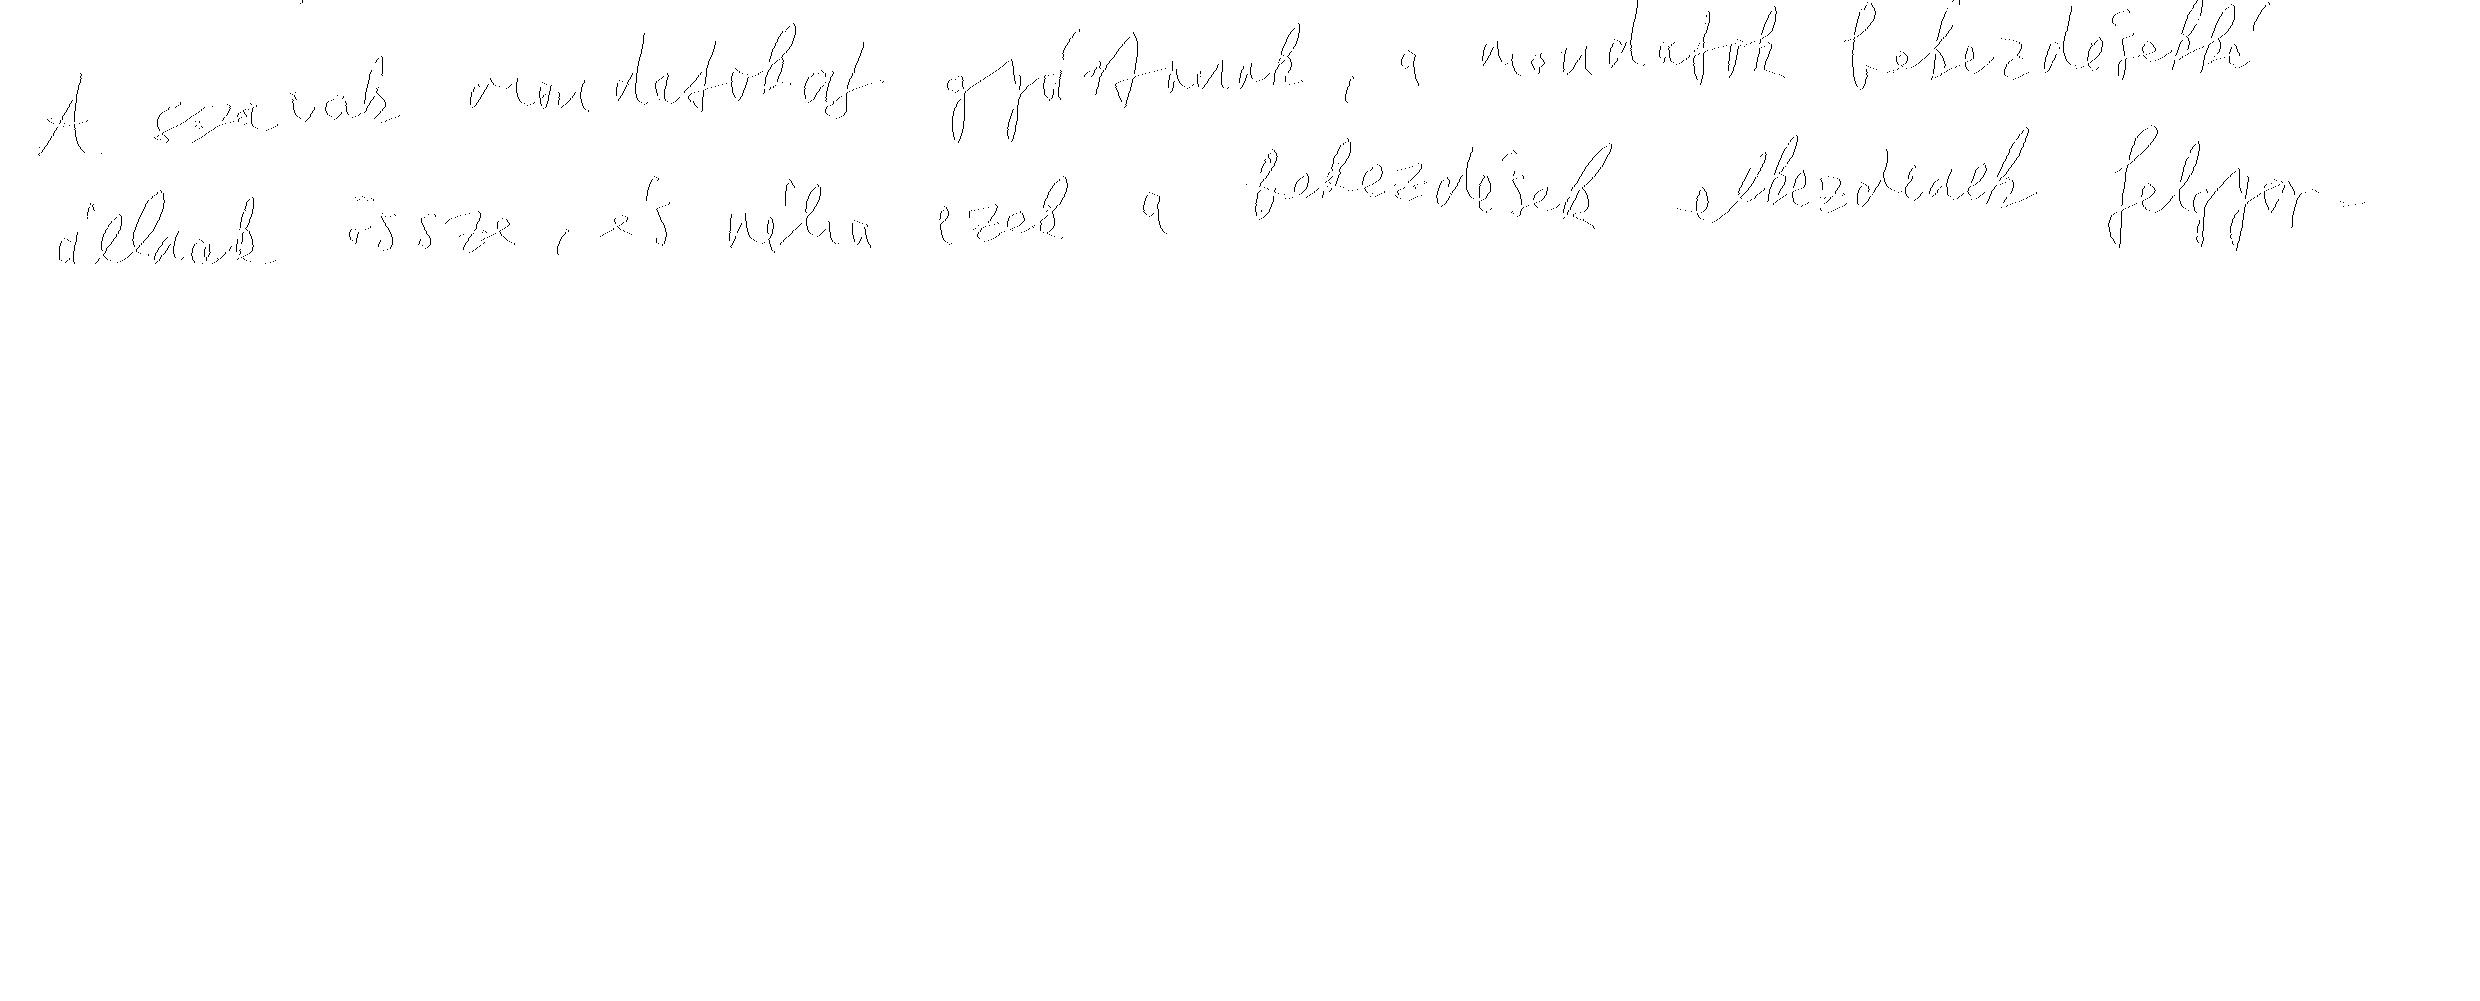 A szavak mondatokat gyártanak, a mondatok bekezdésekké
állnak össze, és néha ezek a bekezdések elkezdenek felgyor-